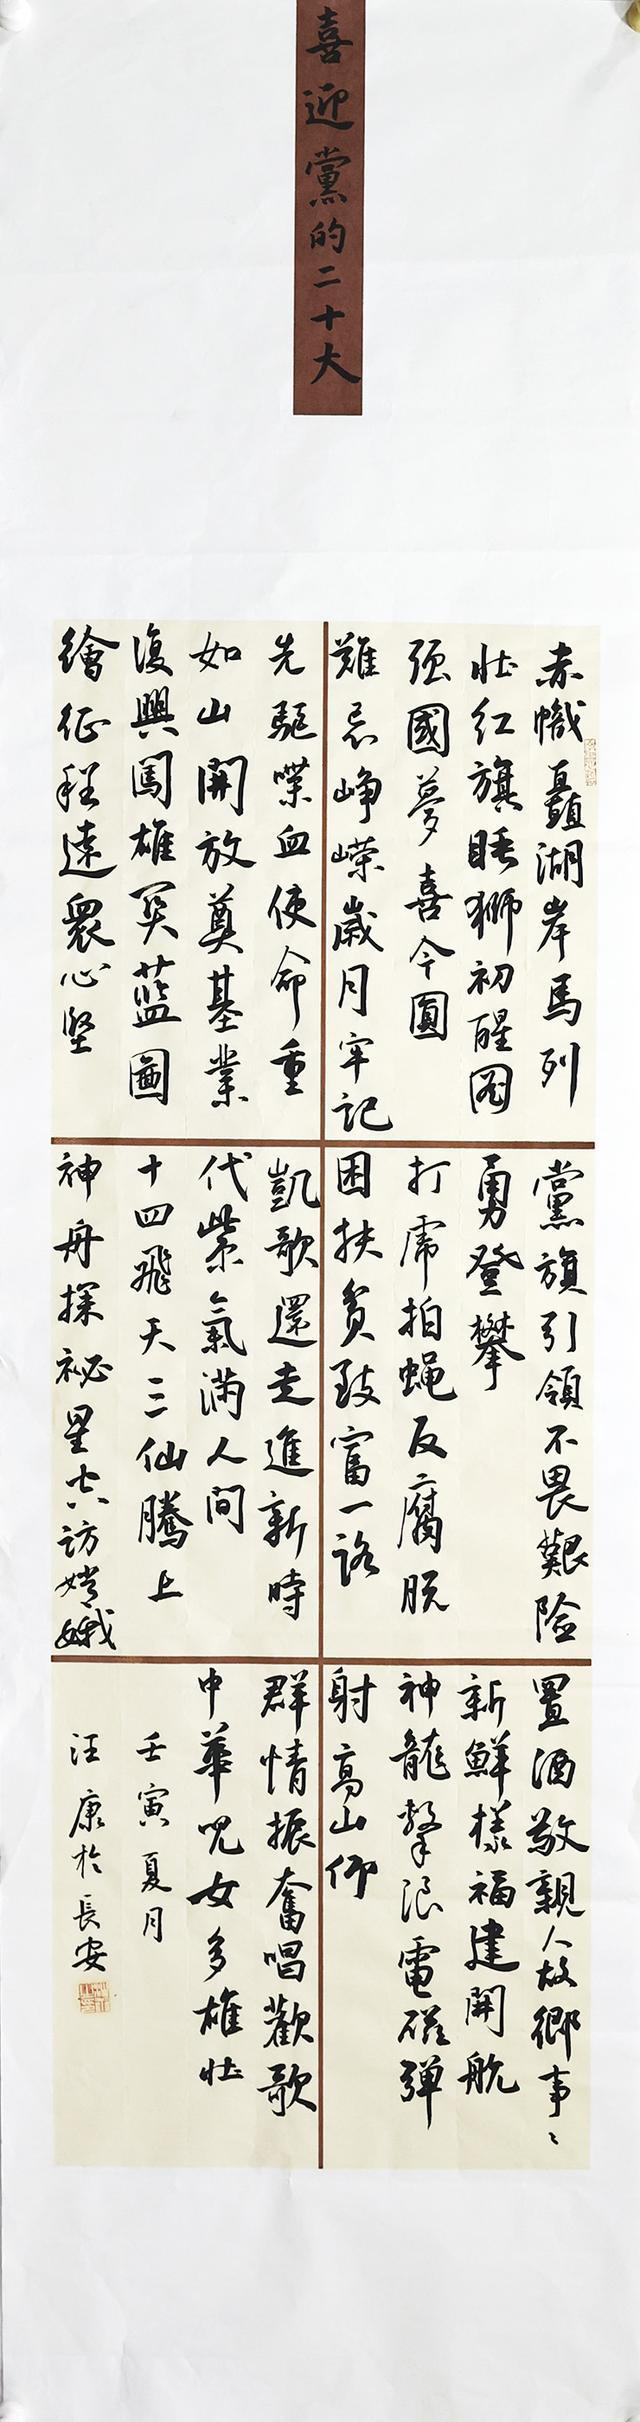 喜迎黨的二十大
赤幟矗湖岸馬列
壯红旗睡獅初醒圖
强國夢喜今圓
難忘崢嶸歲月牢記
先驅喋血使命重
如山開放奠基業
復興闖雄关藍圖
繪征程遠衆心堅
黨旗引領不畏艱險
勇登攀
打虎拍蝇反腐脱
困扶貧致富一路
凱歌還走進新時
代紫氣满人間
十四飛天三仙騰上
神舟探祕星空訪嫦娥
置酒敬親人故鄉事〻
新鮮樣福建開航
神龍擊浪電磁弹
射高山仰
群情振奮唱歡歌
中華兒女多雄壯
壬寅夏月
汪康於長安